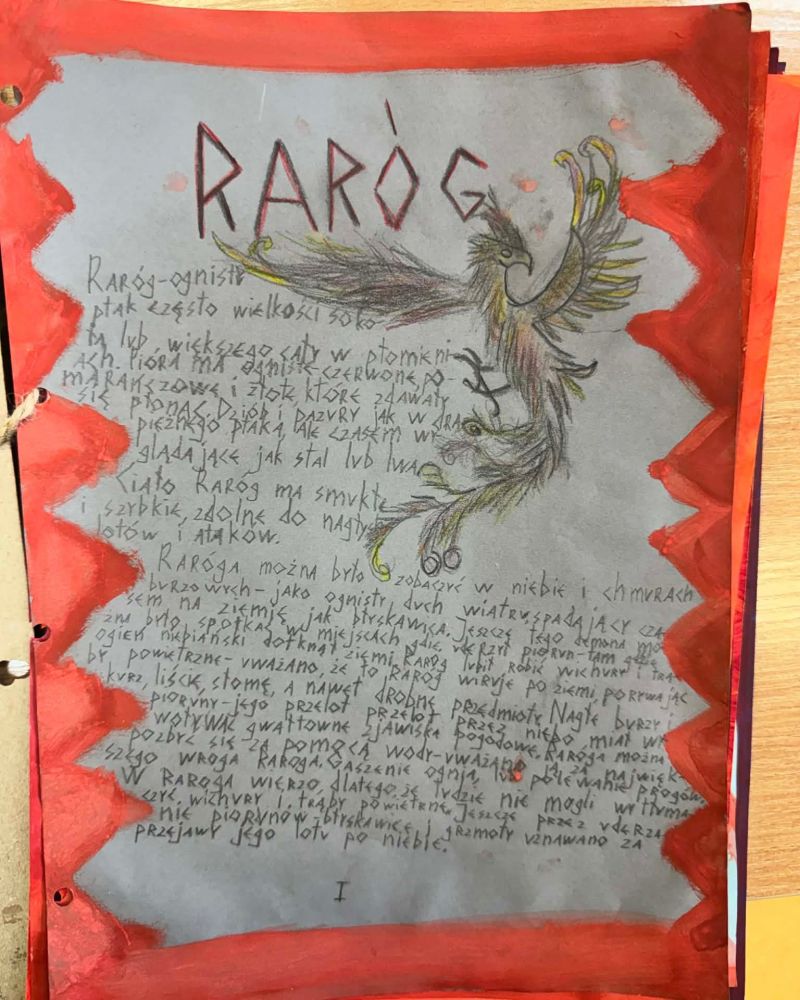 RARÓG
Raróg-ognisty
ptak często wielkości soko-
ła lub większego cały w płomieni-
ach. Pióra ma ogniste-czerwone, po-
marańczowe i złote, które zdawały
się płonąć. Dziób i pazury jak w dra-
pieżnego ptaka, ale czasem wy-
glądające jak stal lub lwa.
Ciało Raróg ma smukłe
i szybkie, zdolne do nagłych
lotów i ataków.
Raróga można było zobaczyć w niebie i chmurach
burzowych- jako ognisty duch wiatru, spadający cza-
sem na ziemię jak błyskawica. Jeszcze tego demona mo-
żna było spotkać w miejscach gdzie uderzył piorun- tam gdzie
ogień niebiański dotknął ziemi. Raróg lubił robić wichury i trą-
by powietrzne- uważano, że to Raróg wiruje po ziemi, porywając
kurz, liście, słomę, a nawet drobne przedmioty. Nagłe burzy i
pioruny- jego przelot przelot przez niebo miał wy-
woływać gwałtowne zjawiska pogodowe. Raróga można
pozbyć się za pomocą wody- uważano ją za najwięk-
szego wroga Raróga. Gaszenie ognia, lub polewanie progów.
W Raróga wierzo, dlatego, że ludzie nie mogli wytłuma-
czyć, wichury i trąby powietrzne. Jeszcze przez uderza-
nie piorunów- błyskawice i grzmoty uznawano za
przejawy jego lotu po niebie.
I